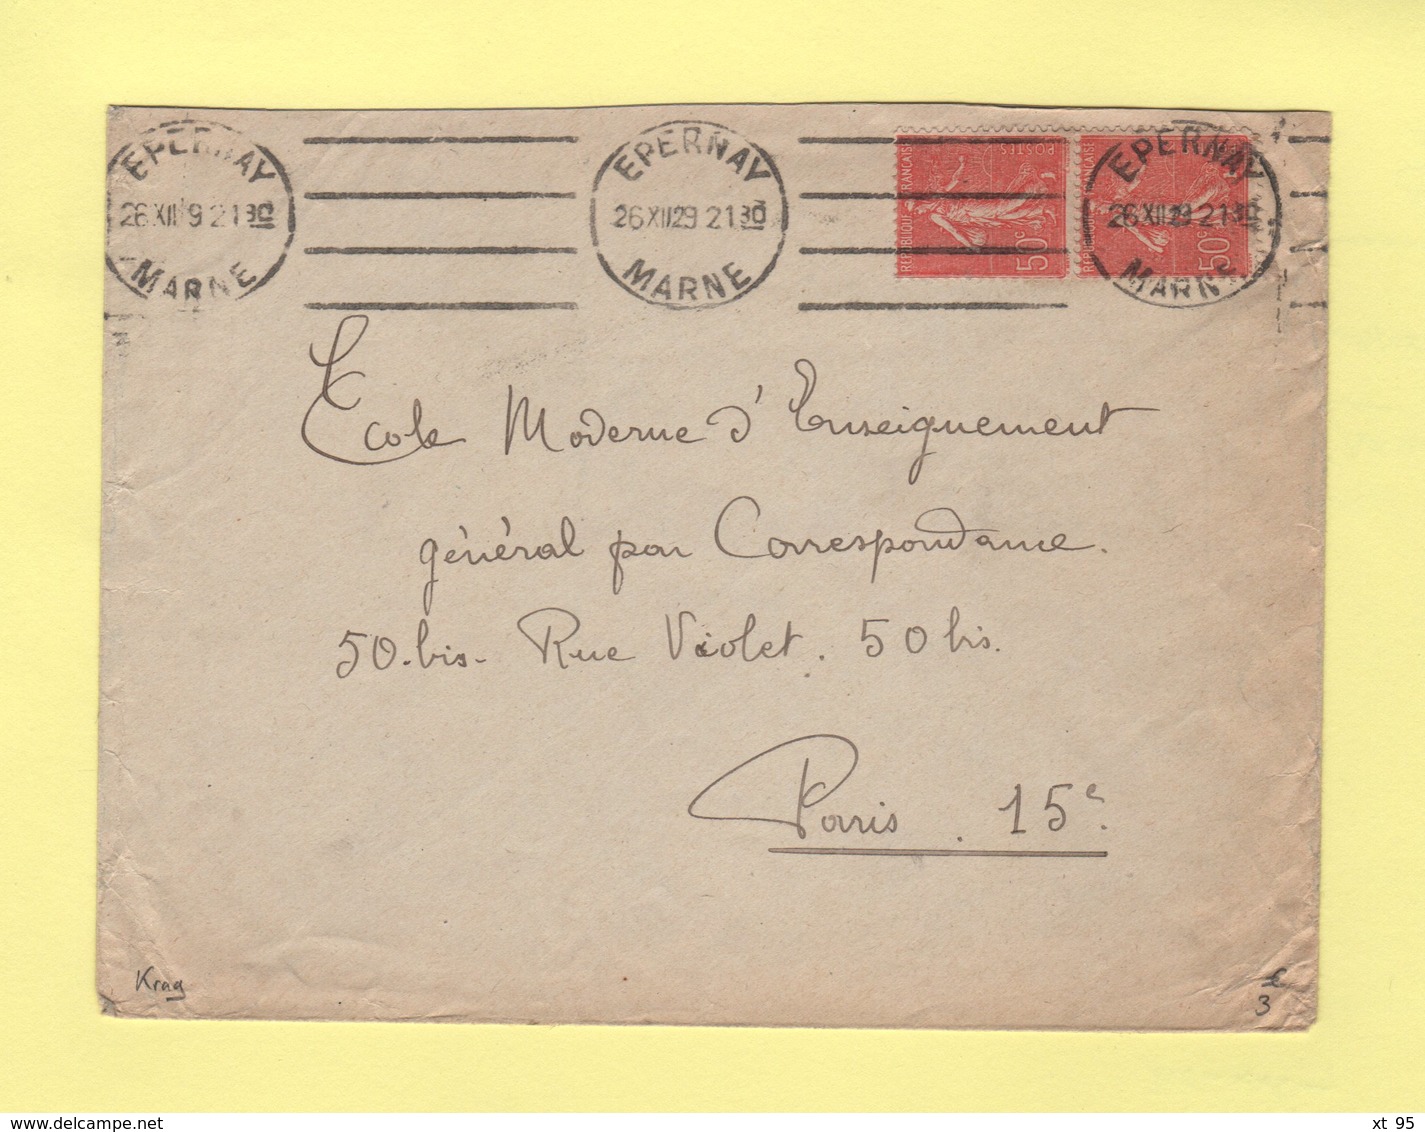 EPERNAY
26 XII 9 21 30
MARNE
EPERNAY
26 XII 29 21 30
MARNE
EPERNAY
26 XII 29 21 30
MARNE
REPUBLIQUE FRANÇAISE
POSTES
50c
REPUBLIQUE FRANÇAISE
50c
Ecole Moderne d'Enseignement
général par Correspondance.
50 bis - Rue Violet. 50 bis.
Paris. 15e.
Krag
€
3
www.delcampe.net
xt_95